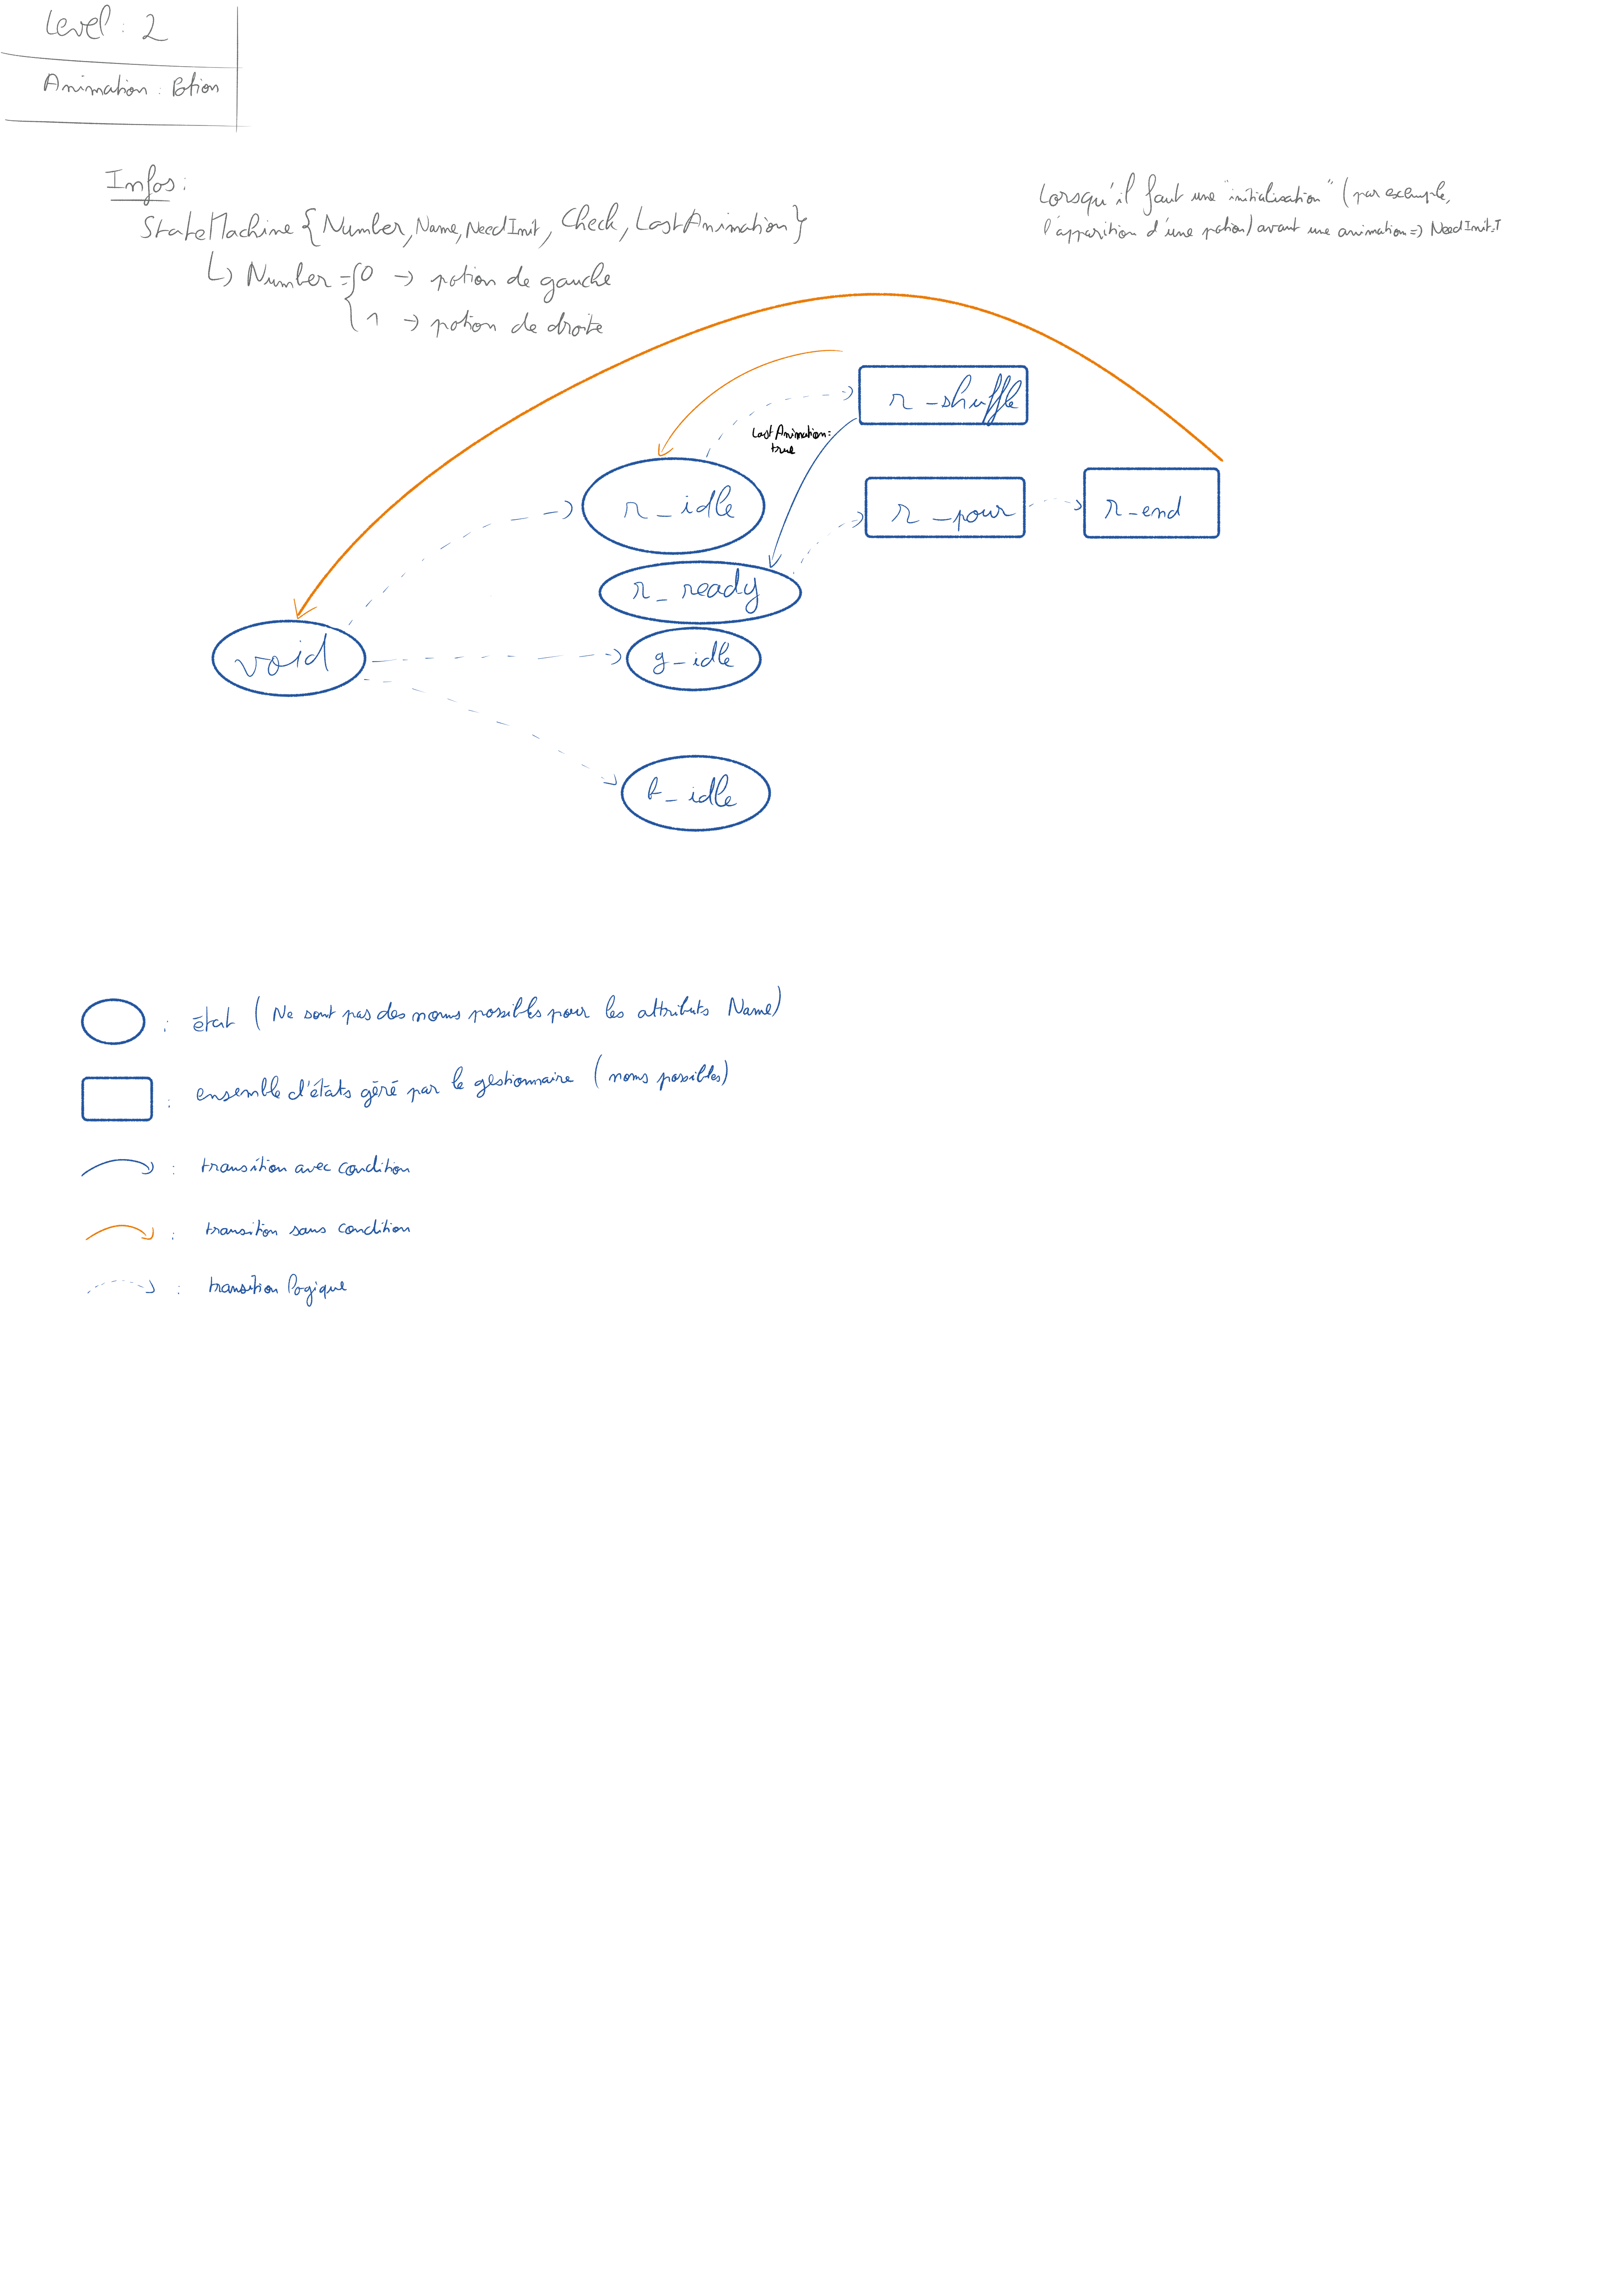 Level : 2
Animation : Potion
Infos :
StateMachine {Number, Name, NeedInit, Check, LastAnimation}
↳ Number = { 0 → potion de gauche
1 → potion de droite
Lorsqu'il faut une "initialisation" (par exemple,
l'apparition d'une potion) avant une animation => NeedInit=T
r_shuffle
LastAnimation =
true
r_idle
r_pour
r_end
r_ready
void
g_idle
b_idle
: état (Ne sont pas des noms possibles pour les attributs Name)
: ensemble d'états géré par le gestionnaire (noms possibles)
: transition avec condition
: transition sans condition
: transition logique